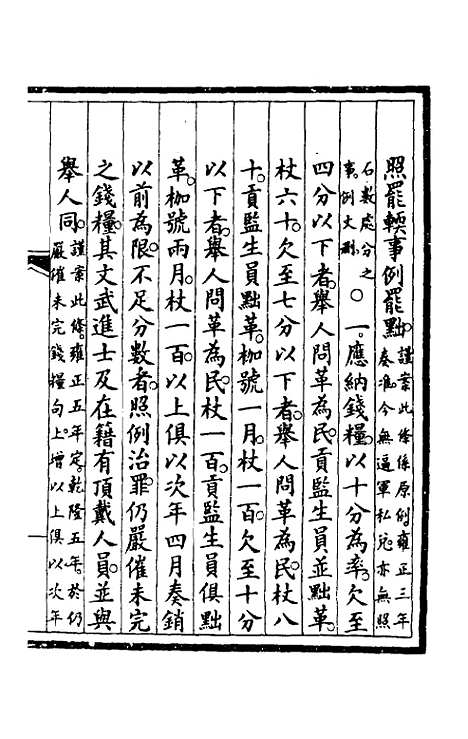 照罷輭事例罷黜。謹案此條係原例雍正三年奏准今無逼軍私宛亦無照
石數處分之事例文刪○一應納錢糧以十分為率欠至
四分以下者舉人問革為民貢監生員並黜革
杖六十欠至七分以下者舉人問革為民杖八
十貢監生員黜革枷號一月杖一百欠至十分
以下者舉人問革為民杖一百貢監生員俱黜
革枷號兩月杖一百以上俱以次年四月奏銷
以前為限不足分數者照例治罪仍嚴催未完
之錢糧其文武進士及在籍有頂戴人員並與
舉人同謹案此條雍正五年定乾隆五年於仍嚴催未完錢糧句上增以上俱以次年